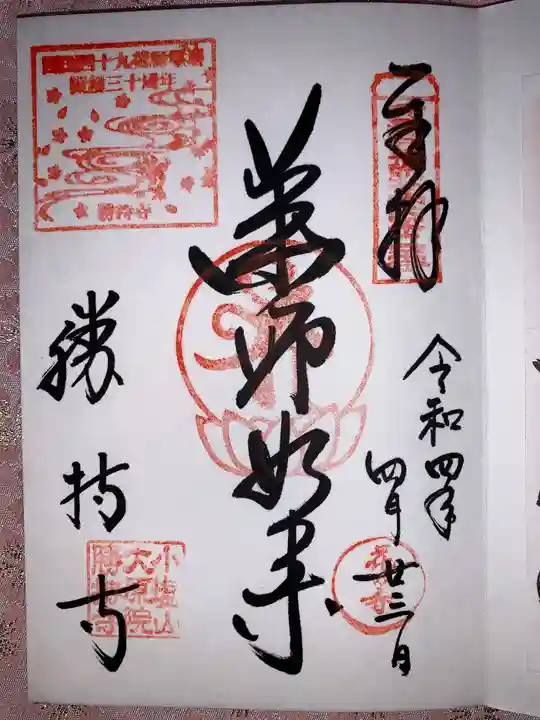 奉拝
令和四年
四月廿三日
薬師如来
勝持寺
四十九薬師霊場
三十周年
勝持寺
小塩山
大原院
勝持寺